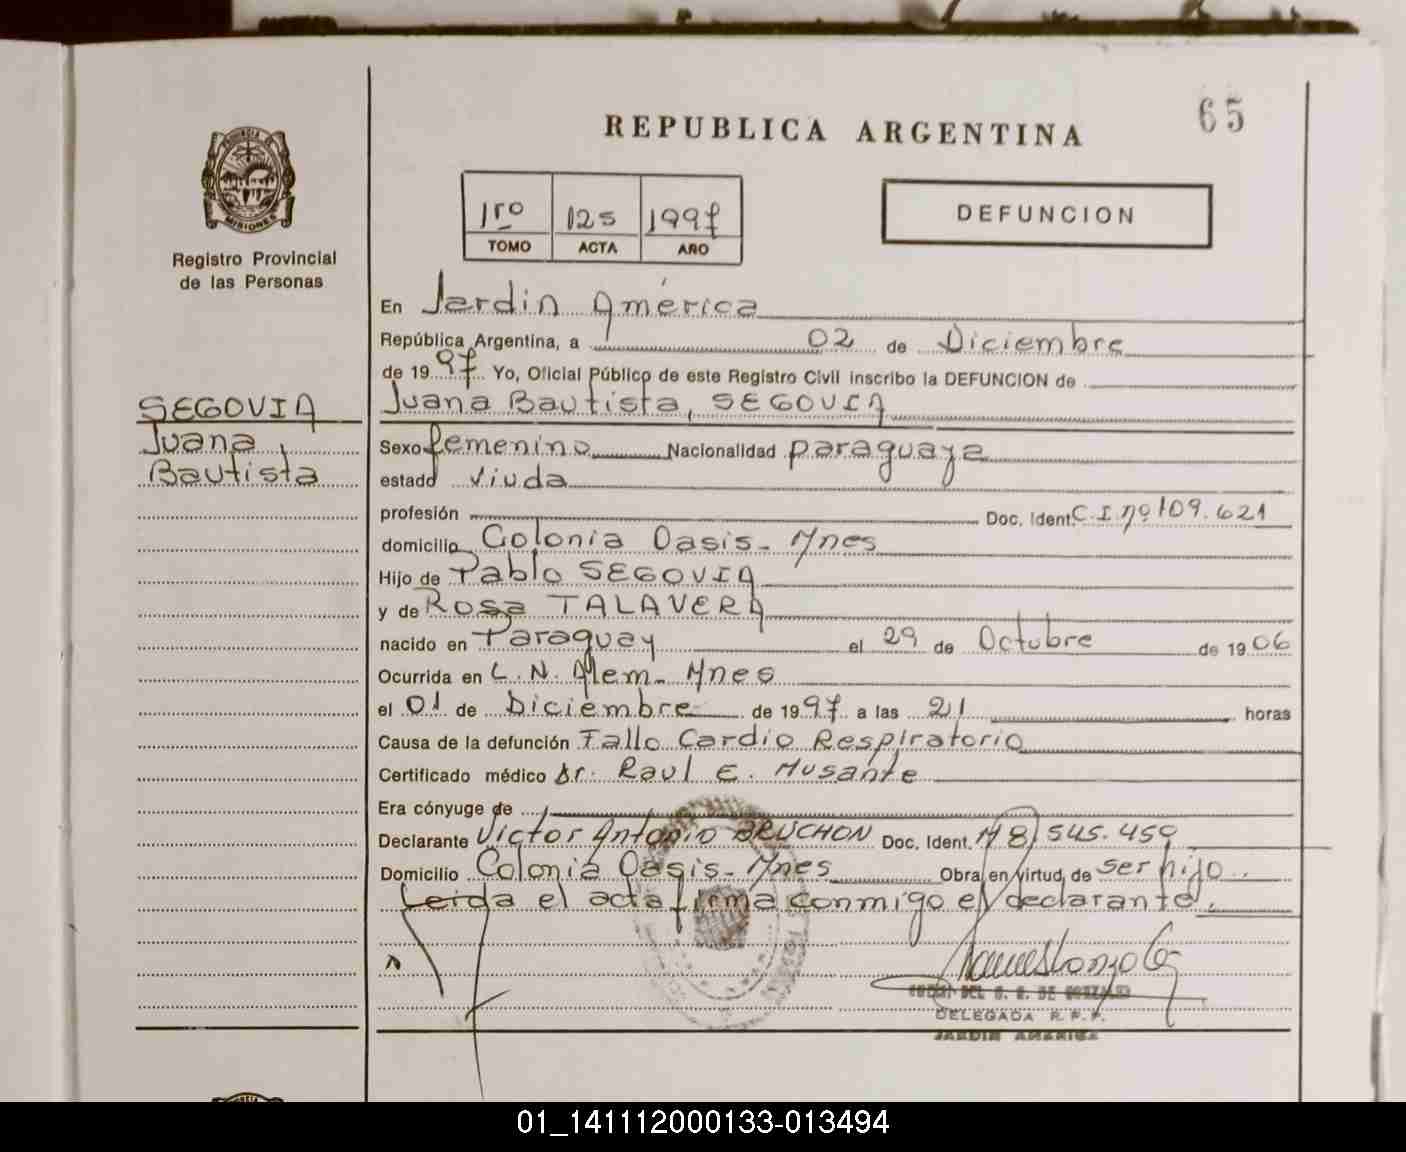 65
REPUBLICA ARGENTINA
PROVINCIA DE
MISIONES
Registro Provincial
de las Personas
1ro 125 1997
TOMO ACTA AÑO
DEFUNCION
En Jardin América
República Argentina, a 02 de Diciembre
de 1997 Yo, Oficial Público de este Registro Civil inscribo la DEFUNCION de
SEGOVIA
Juana
Bautista
Juana Bautista, SEGOVIA
Sexo femenino Nacionalidad paraguaya
estado viuda
profesión Doc. Ident. C.I. nº 109.621
domicilio Colonia Oasis - Mnes
Hijo de Pablo SEGOVIA
y de Rosa TALAVERA
nacido en Paraguay el 29 de Octubre de 1906
Ocurrida en L. N. Alem - Mnes
el 01 de Diciembre de 1997 a las 21 horas
Causa de la defunción Fallo Cardio Respiratorio
Certificado médico Dr. Raul E. Musante
Era cónyuge de
Declarante Victor Antonio BRUCHON Doc. Ident. M 8.545.459
Domicilio Colonia Oasis - Mnes Obra en virtud de ser hijo.
Leida el acta firma conmigo el declarante.
DELEGADA R. P. P.
JARDIN AMERICA
01_141112000133-013494